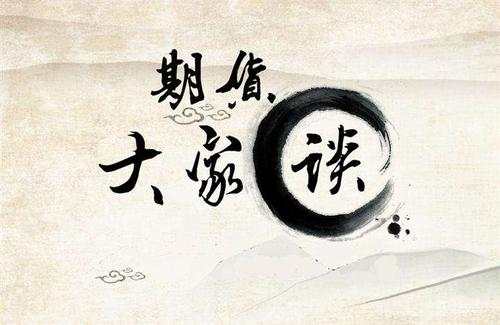 期货
大家谈